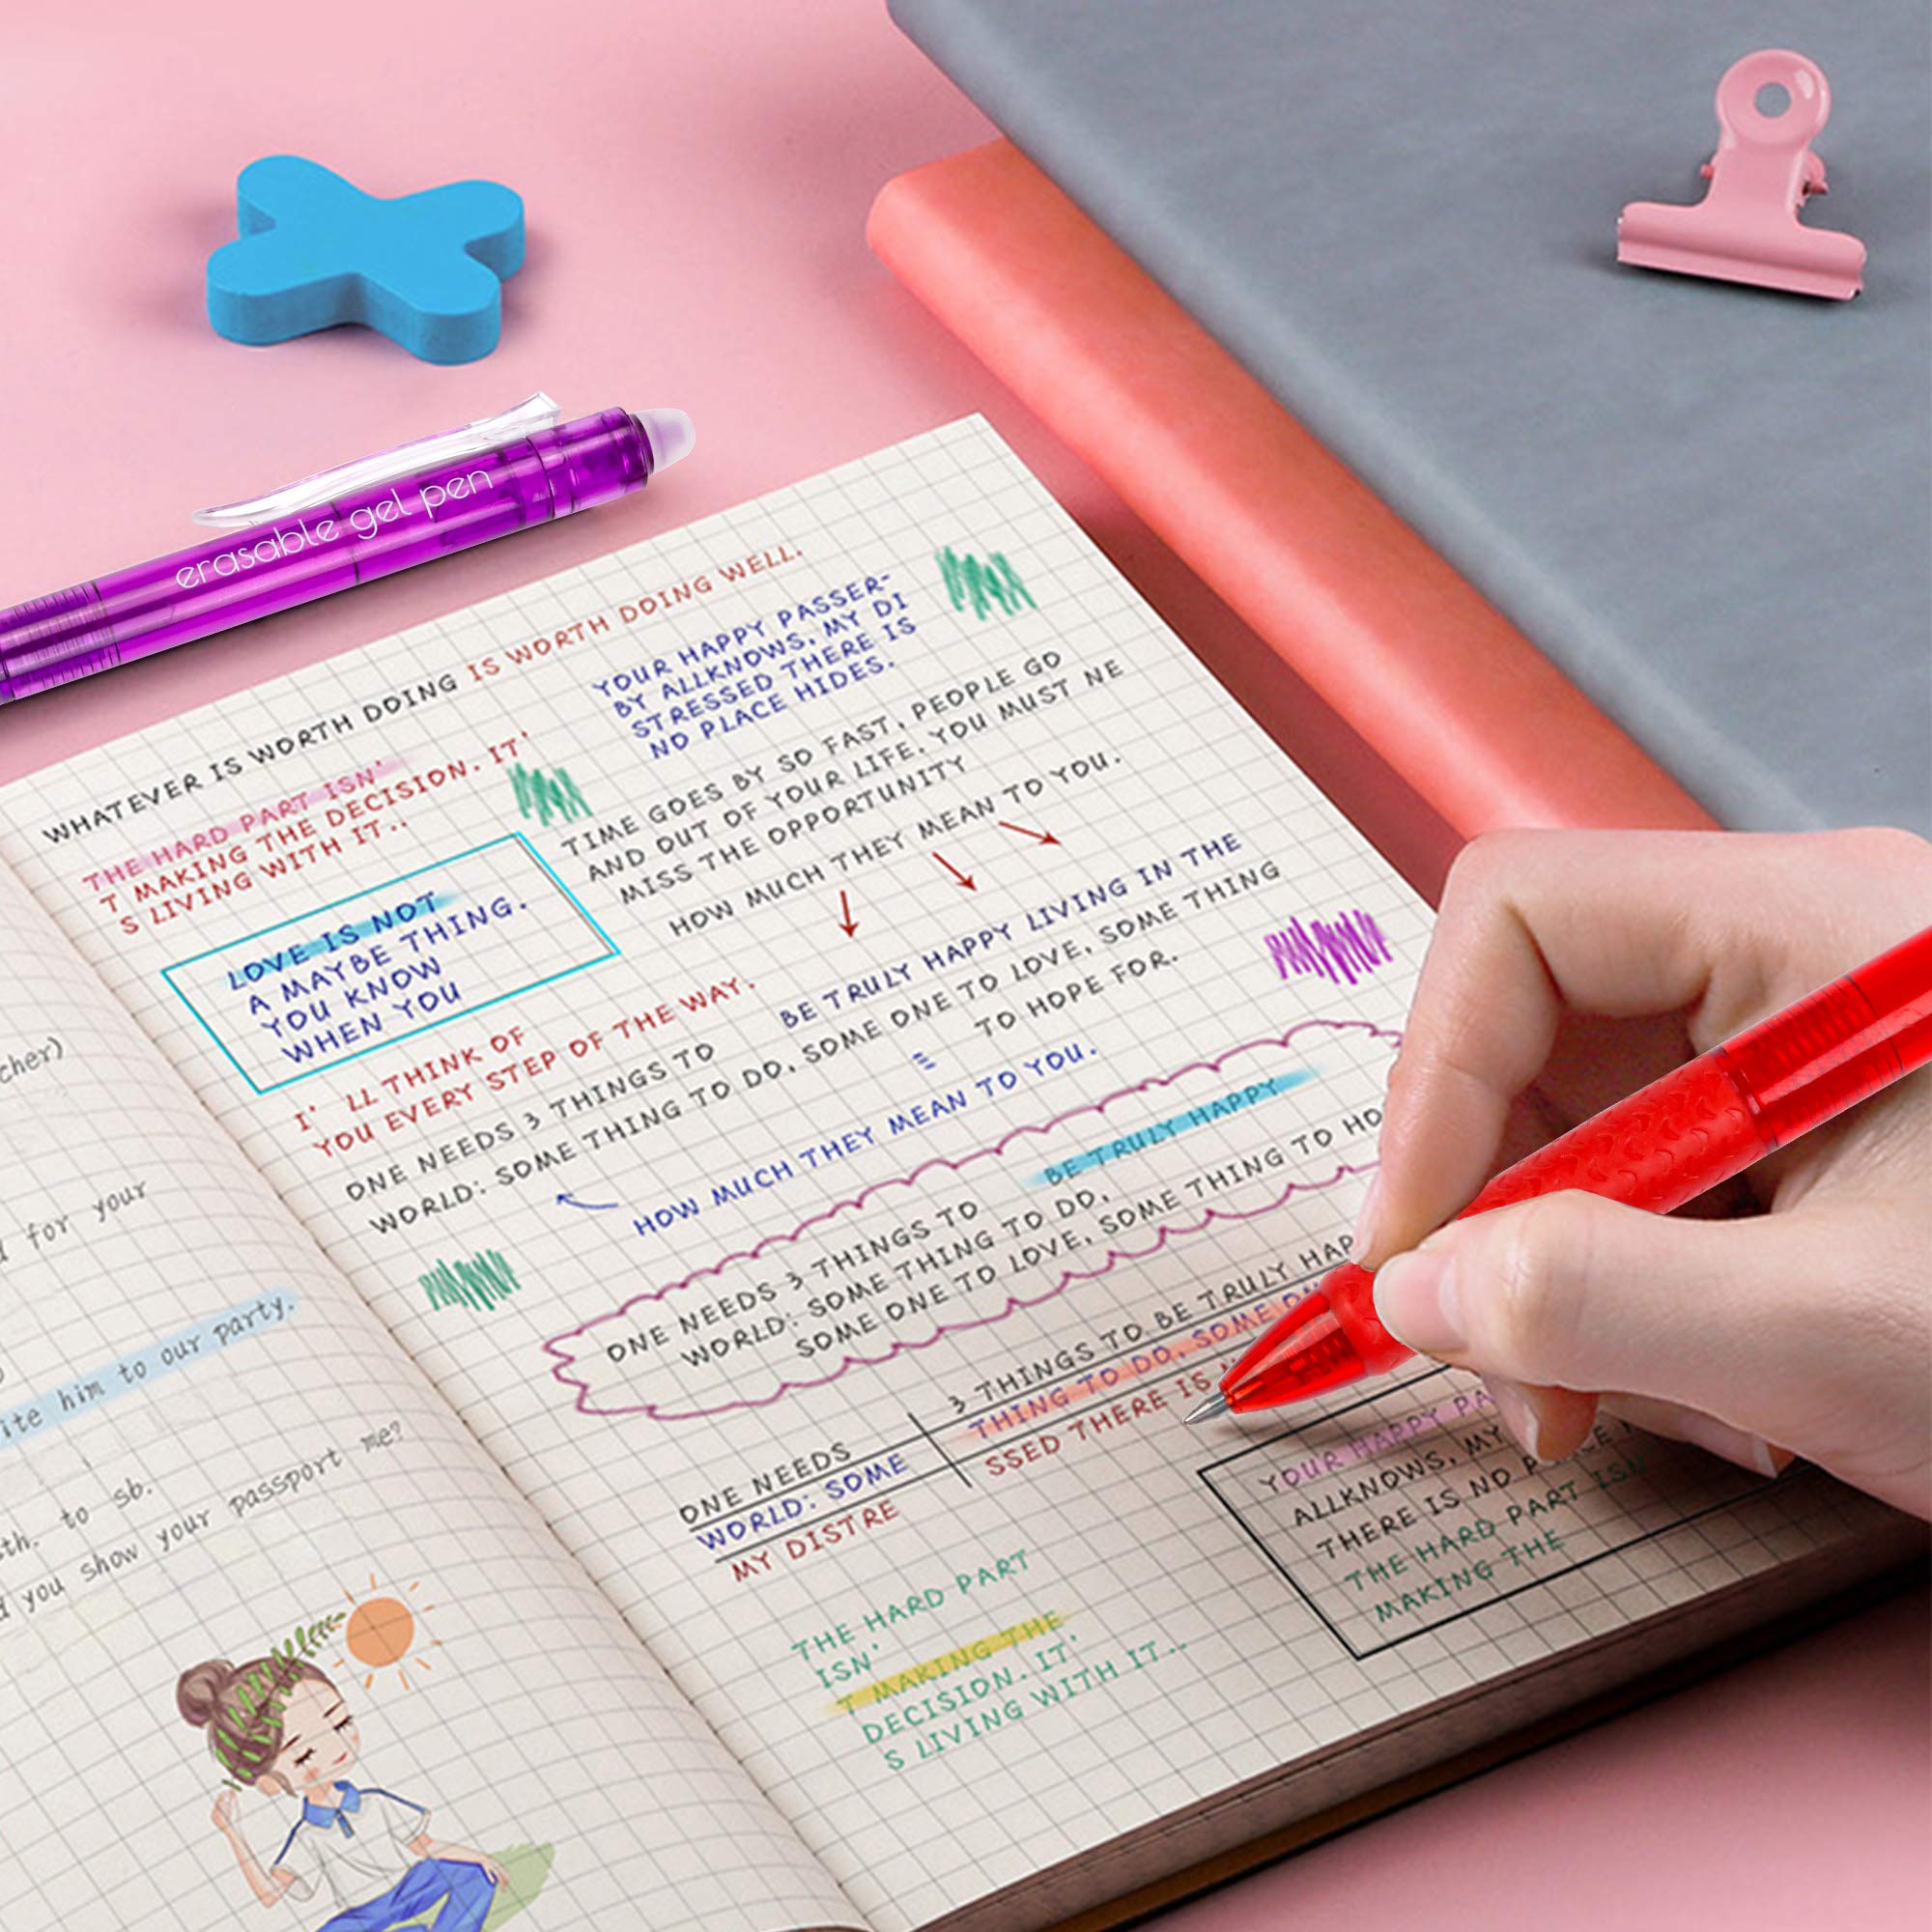 erasable gel pen
WHATEVER IS WORTH DOING IS WORTH DOING WELL.
THE HARD PART ISN'
T MAKING THE DECISION. IT'
S LIVING WITH IT..
YOUR HAPPY PASSER-
BY ALLKNOWS, MY DI
STRESSED THERE IS
NO PLACE HIDES.
TIME GOES BY SO FAST, PEOPLE GO
AND OUT OF YOUR LIFE. YOU MUST NE
MISS THE OPPORTUNITY
HOW MUCH THEY MEAN TO YOU.
LOVE IS NOT
A MAYBE THING.
YOU KNOW
WHEN YOU
I' LL THINK OF
YOU EVERY STEP OF THE WAY.
ONE NEEDS 3 THINGS TO BE TRULY HAPPY LIVING IN THE
WORLD: SOME THING TO DO, SOME ONE TO LOVE, SOME THING
TO HOPE FOR.
HOW MUCH THEY MEAN TO YOU.
ONE NEEDS 3 THINGS TO BE TRULY HAPPY
WORLD: SOME THING TO DO,
SOME ONE TO LOVE, SOME THING TO HO
ONE NEEDS 3 THINGS TO BE TRULY HAP
WORLD: SOME THING TO DO, SOME
MY DISTRE SSED THERE IS
YOUR HAPPY PA
ALLKNOWS, MY
THERE IS NO
THE HARD PART ISN
MAKING THE
THE HARD PART
ISN'
T MAKING THE
DECISION. IT'
S LIVING WITH IT..
cher)
for your
ite him to our party.
sth. to sb.
you show your passport me?